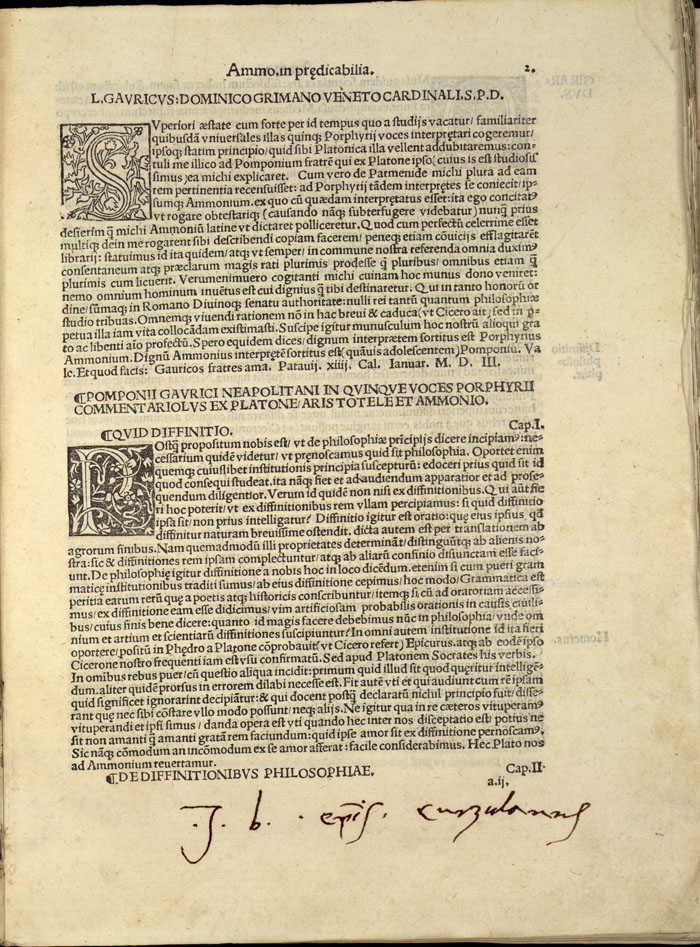 Ammo.in prędicabilia. 2.
L.GAVRICVS:DOMINICO GRIMANO VENETO CARDINALI.S.P.D.
SVperiori æstate cum forte per id tempus quo a studijs vacatur/ familiariter
quibusdā vniuersales illas quinq; Porphyrij voces interpretari cogeremur/
ipsoq; statim principio/ quid sibi Platonica illa vellent addubitaremus: con-
tuli me illico ad Pomponium fratrē qui ex Platone ipso( cuius is est studiosis
simus )ea michi explicaret. Cum vero de Parmenide michi plura ad eam
rem pertinentia recensuisset: ad Porphyrij tādem interpretes se coniecit/ip-
sumq; Ammonium. ex quo cū quædam interpretatus esset: ita ego concitatꝰ
vt rogare obtestariq; (causando nāq; subterfugere videbatur) nunq̄ prius
desierim q̄ michi Ammoniū latine vt dictaret polliceretur. Quod cum perfectū celerrime esset
multiq; dein me rogarent sibi describendi copiam facerem/ peneq; etiam cōuicijs efflagitarēt
librarij: statuimus id ita quidem/ atq; vt semper/ in commune nostra referenda omnia duximꝰ
consentaneum atq; præclarum magis rati plurimis prodesse q̄ pluribus/ omnibus etiam q̄
plurimis cum licuerit. Verumenimuero cogitanti michi cuinam hoc munus dono veniret:
nemo omnium hominum inuētus est cui dignius q̄ tibi destinaretur. Qui in tanto honorū or
dine/sūmaq; in Romano Diuinoq; senatu authoritate: nulli rei tantū quantum philosophiæ
studio tribuas. Omnemq; viuendi rationem nō in hac breui & caduca( vt Cicero ait) sed in ꝑ-
petua illa iam vita collocādam existimasti. Suscipe igitur munusculum hoc nostrū alioqui gra
to ac libenti aio profectū. Spero equidem dices/ dignum interpretem sortitus est Porphyrius
Ammonium. Dignū Ammonius interpretē sortitus est( quāuis adolescentem) Pomponiū. Va
le. Et quod facis: Gauricos fratres ama. Patauij. xiiij. Cal. Ianuar. M. D. III.
¶POMPONII GAVRICI NEAPOLITANI IN QVINQVE VOCES PORPHYRII
COMMENTARIOLVS EX PLATONE/ARISTOTELE ET AMMONIO.
¶QVID DIFFINITIO. Cap.I.
POstq̄ propositum nobis est/ vt de philosophiæ prīcipijs dicere incipiamꝰ: ne-
cessarium quidē videtur/ vt prænoscamus quid sit philosophia. Oportet enim
quemq; cuiuslibet institutionis principia suscepturū: edoceri prius quid sit id
quod consequi studeat. ita nāq; fiet et ad audiendum apparatior et ad prose-
quendum diligentior. Verum id quidē non nisi ex diffinitionibus. Qui aūt fie
ri hoc poterit/ vt ex diffinitionibus rem vllam percipiamus: si quid diffinitio
ipsa sit/ non prius intelligatur? Diffinitio igitur est oratio: que eius ipsius qđ
diffinitur naturam breuissime ostendit. dicta autem est per translationem ab
agrorum finibus. Nam quemadmodū illi proprietates determināt/ distinguūtq; ab alienis no-
stra: sic & diffinitiones rem ipsam complectuntur/ atq; ab aliarū confinio disiunctam esse faci-
unt. De philosophię igitur diffinitione a nobis hoc in loco dicēdum. etenim si cum pueri gram
maticę institutionibus traditi sumus/ ab eius diffinitione cepimus/ hoc modo/ Grammatica est
peritia earum rerū que a poetis atq; historicis conscribuntur/ itemq; si cū ad oratoriam accessi-
mus/ ex diffinitione eam esse didicimus/ vim artificiosam probabilis orationis in causis ciuili-
bus/ cuius finis bene dicere: quanto id magis facere debebimus nūc in philosophia/ vnde om
nium et artium et scientiarū diffinitiones suscipiuntur? In omni autem institutione id ita fieri
oportere/ positū in Phędro a Platone cōprobauit( vt Cicero refert) Epicurus. atq; ab eodē ipso
Cicerone nostro frequenti iam est vsu confirmatū. Sed apud Platonem Socrates his verbis.
In omibus rebus puer/ cū questio aliqua incidit: primum quid illud sit quod queritur intelligē-
dum. aliter quidē prorsus in errorem dilabi necesse est. Fit autē vti et qui audiunt cum rē ipsam
quid significet ignorarint decipiātur: & qui docent postq̄ declaratū nichil principio fuit/ disse-
rant que nec sibi cōstare vllo modo possunt/ neq; alijs. Ne igitur qua in re cæteros vituperamꝰ
vituperandi et ipsi simus/ danda opera est vti quando hec inter nos disceptatio est/ potius ne
sit non amanti q̄ amanti gratā rem faciundum: quid ipse amor sit ex diffinitione pernoscamꝰ.
Sic nāq; cōmodum an incōmodum ex se amor afferat: facile considerabimus. Hec Plato nos
ad Ammonium reuertamur.
¶DE DIFFINITIONIBVS PHILOSOPHIAE. Cap.II
a.ij.
.J. b. . epīs. curzulanus